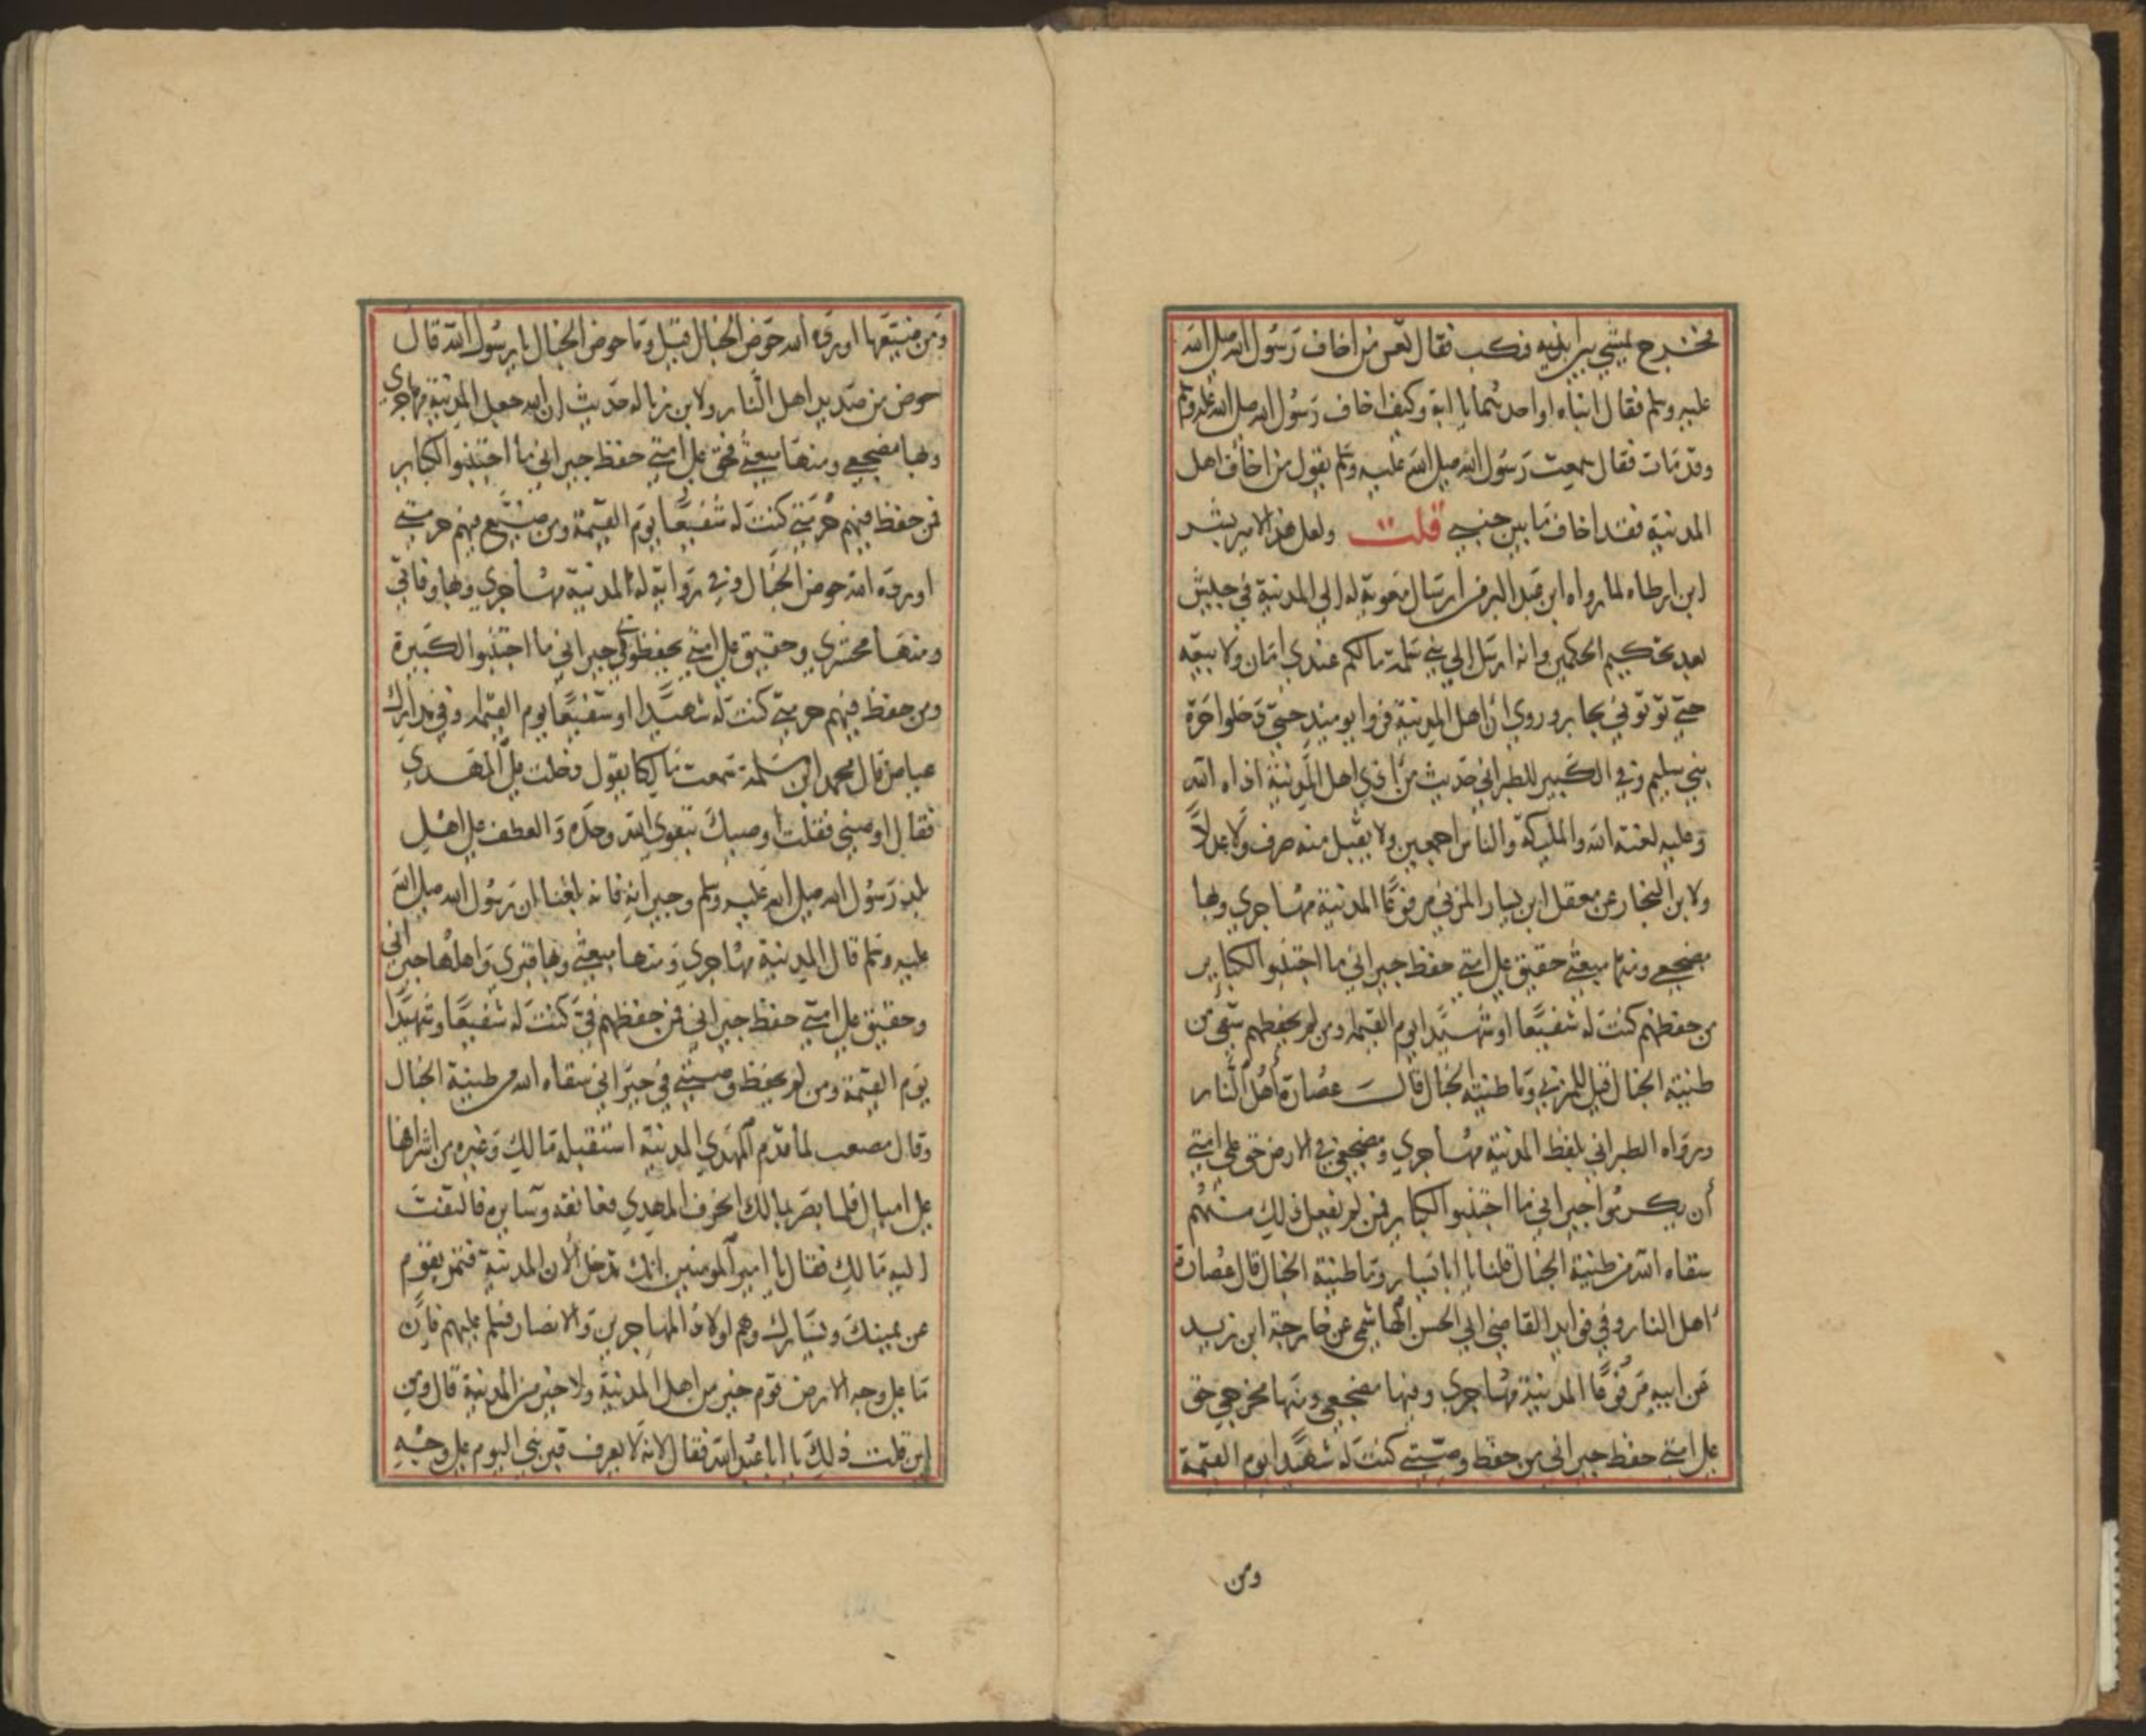 فخرج يمشي بين ابنيه فنكب فقال تعس من اخاف رسول الله صلى الله
عليه وسلم فقال ابناه او احدهما يا ابة وكيف اخاف رسول الله صلى الله عليه وسلم
وقد مات فقال سمعت رسول الله صلى الله عليه وسلم يقول من اخاف اهل
المدينة فقد اخاف ما بين جنبي قلت ولعل هذا الامير بشر
ابن ارطاه لما رواه ابن عبد البر من ارسال معوية له الى المدينة في جيش
بعد تحكيم الحكمين وانه ارسل الى بني سلمة ما لكم عندي امان ولا بيعة
حتى توتوني بجابر وروي ان اهل المدينة فروا يوميذ حتى دخلوا حرة
بني سليم وفي الكبير للطبراني حديث من اذى اهل المدينة اذاه الله
وعليه لعنة الله والمليكة والناس اجمعين ولا يقبل منه صرف ولا عدلا
ولابن النجار عن معقل ابن يسار المزني مرفوعًا المدينة مهاجري وبها
مضجعي ومنها مبعثي حقيق على امتي حفظ جيراني ما اجتنبوا الكباير
من حفظهم كنت له شفيعًا او شهيدا يوم القيمة ومن لم يحفظهم سقي من
طينة الخبال قيل للمزني وما طينة الخبال قال عصارة أهل النار
ورواه الطبراني بلفظ المدينة مهاجري ومضجعي في الارض حق على امتي
أن يكرموا جيراني ما اجتنبوا الكباير فمن لم يفعل ذلك منهم
سقاه الله من طينة الخبال قلنا يا ابا يسار وما طينة الخبال قال عصارة
اهل النار وفي فوايد القاضي ابي الحسن الهاشمي عن خارجة ابن زيد
عن ابيه مرفوعًا المدينة مهاجري وفيها مضجعي ومنها مخرجي حق
على امتي حفظ جيراني من حفظ وصيتي كنت له شهيدا يوم القيمة
ومن
ومن ضيعها اورده الله حوض الخبال قيل وما حوض الخبال يا رسول الله قال
حوض من صديد اهل النار ولابن زباله حديث ان الله جعل المدينة مهاجري
وبها مضجعي ومنها مبعثي فحق على امتي حفظ جيراني ما اجتنبوا الكباير
فمن حفظ فيهم حرمتي كنت له شفيعًا يوم القيمة ومن ضيع فيهم حرمتي
اورده الله حوض الخبال وفي رواية له المدينة مهاجري وبها وفاتي
ومنها محشري وحقيق على امتي يحفظوني في جيراني ما اجتنبوا الكبيرة
ومن حفظ فيهم حرمتي كنت له شهيدا او شفيعًا يوم القيمة وفي مدارك
عياض قال محمد ابن مسلمة سمعت مالكا يقول دخلت على المهدي
فقال اوصيني فقلت أوصيك بتقوى الله وحده والعطف على اهل
بلد رسول الله صلى الله عليه وسلم وجيرانه فانه بلغنا ان رسول الله صلى الله
عليه وسلم قال المدينة مهاجري ومنها مبعثي وبها قبري واهلها جيراني
وحقيق على امتي حفظ جيراني فمن حفظهم فيّ كنت له شفيعًا وشهيدًا
يوم القيمة ومن لم يحفظ وصيتي في جيراني سقاه الله من طينة الخبال
وقال مصعب لما قدم المهدي المدينة استقبله مالك وغيره من اشرافها
على اميال فلما بصر بمالك انحرف المهدي فعانقه وسايره فالتفت
اليه مالك فقال يا امير المومنين انك تدخل الان المدينة فتمر بقوم
عن يمينك ويسارك وهم اولاد المهاجرين والانصار فسلم عليهم فان
ما على وجه الارض قوم خير من اهل المدينة ولا خير من المدينة قال ومن
اين قلت ذلك يا ابا عبد الله فقال لانه لا يعرف قبر نبي اليوم على وجه